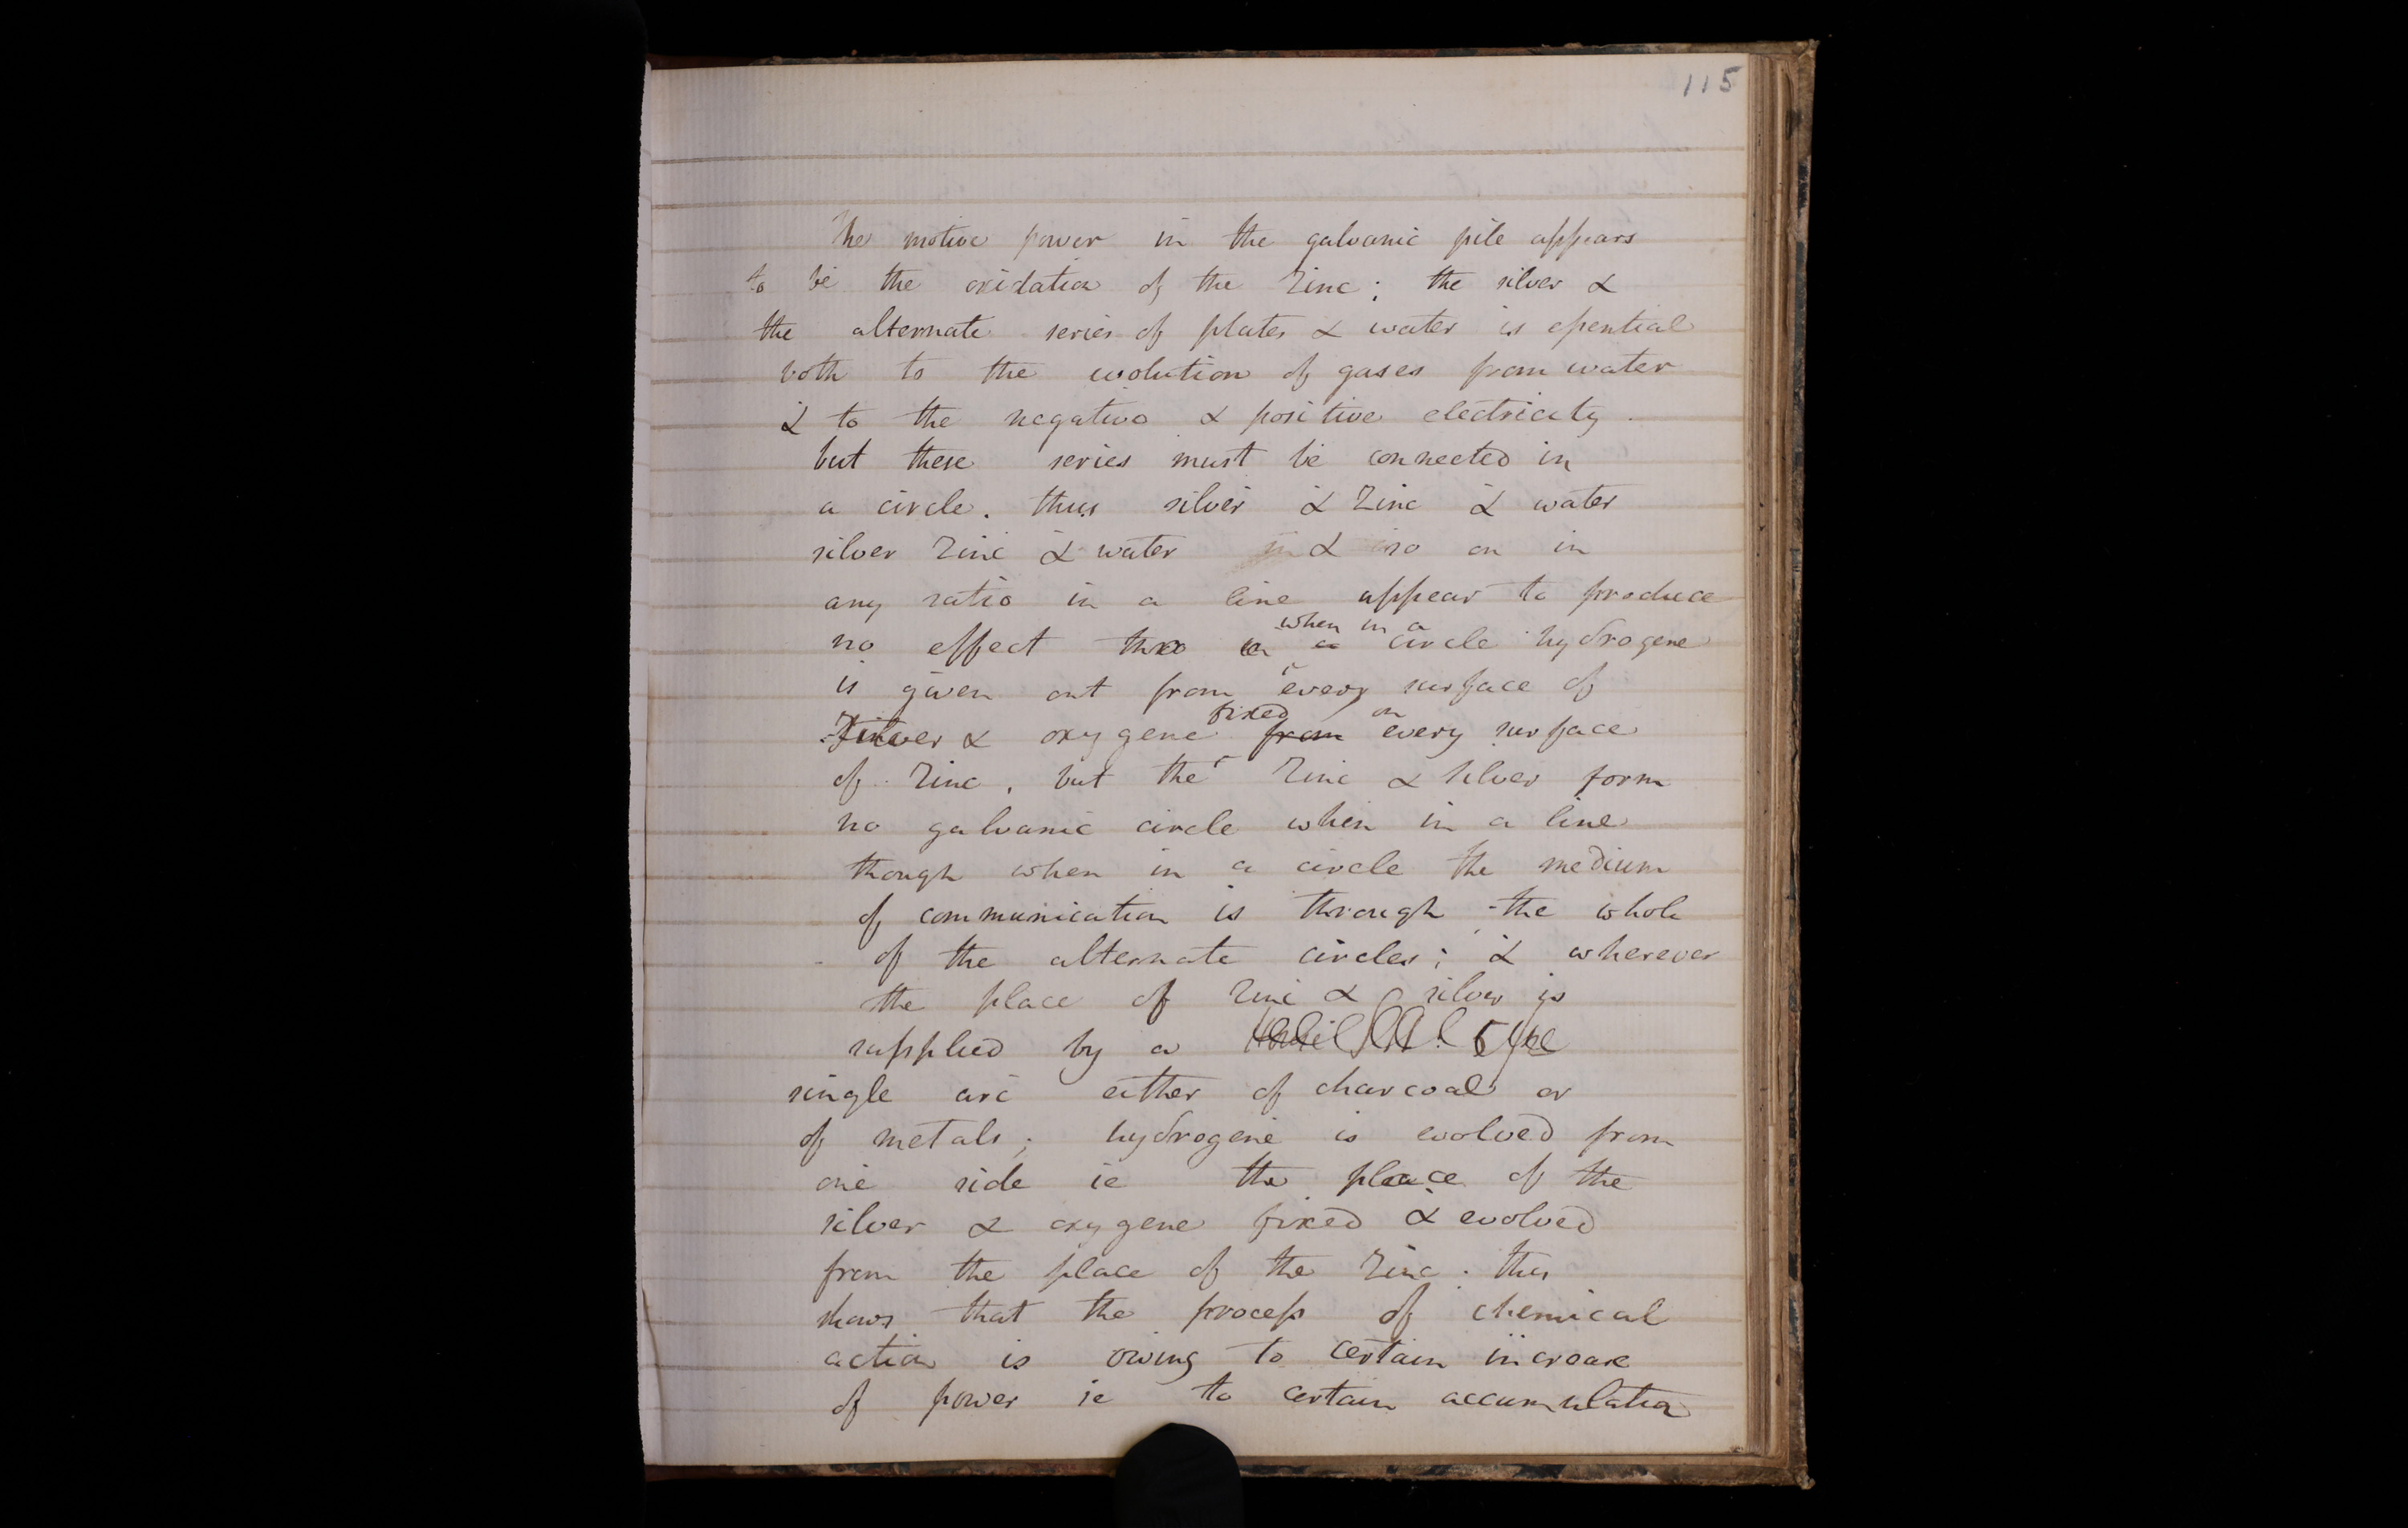 115
The motive power in the galvanic pile appears
to be the oxidation of the Zinc; the silver &
the alternate series of plates & water is essential
both to the evolution of gases from water
& to the negative & positive electricity.
but these series must be connected in
a circle. thus silver & Zinc & water
silver Zinc & water & so on in
any ratio in a line appear to produce
when in a
no effect circle hydrogene
is given out from every surface of
fixed on
silver & oxygene from every surface
of Zinc, but the Zinc & silver form
no galvanic circle when in a line
though when in a circle the medium
of communication is through the whole
of the alternate circles; & wherever
the place of Zinc & silver is
supplied by a
single arc either of charcoal or
of metals; hydrogene is evolved from
one side ie the place of the
silver & oxygene fixed & evolved
from the place of the Zinc. this
shows that the process of chemical
action is owing to certain increase
of power ie to certain accumulation